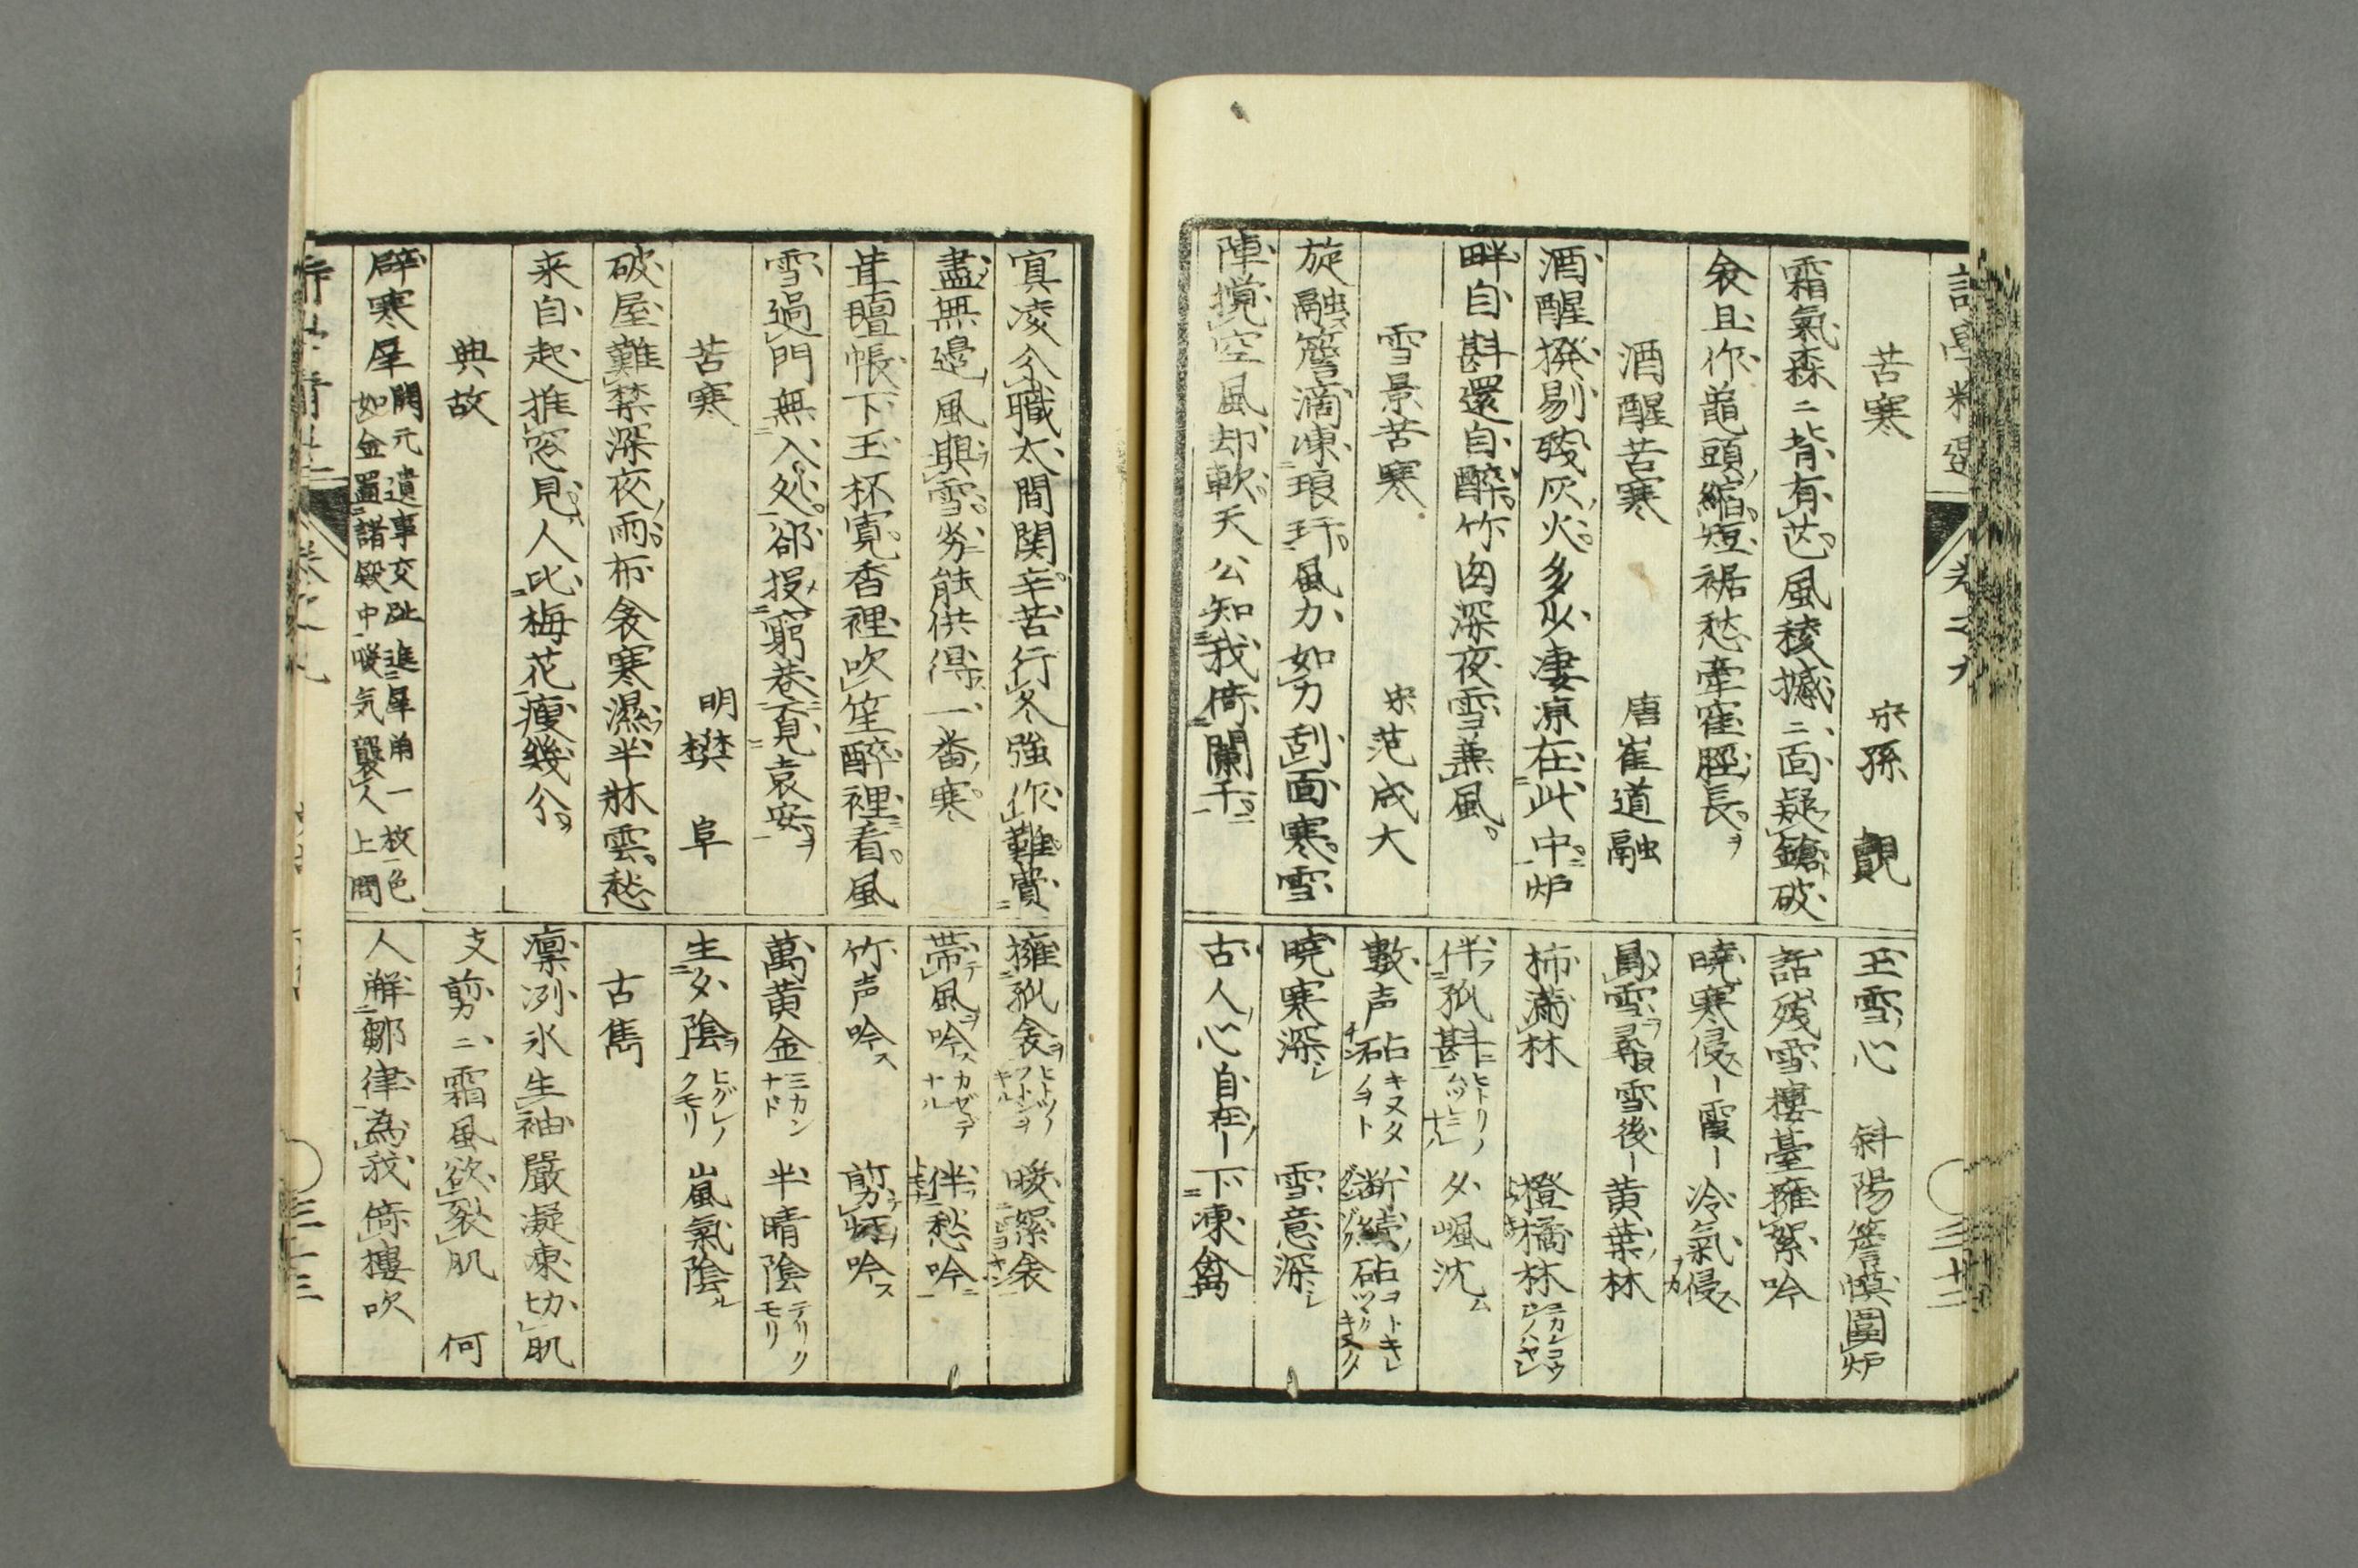 苦寒 宋孫覿
霜氣森二背有芒風稜撼二面疑鎗破
衾且作龜頭縮短裾愁牽窪脛長
酒醒苦寒 唐崔道融
酒醒撥剔殘灰火多少凄凉在此中炉
畔自斟還自醉竹囪深夜雪兼風
雪景苦寒 宋范成大
旋融簷滴凍琅玕風力如刀刮面寒雪
陣攪空風却軟天公知我倚闌干
玉雪心 斜陽簷幙圍炉
話残雪 樓臺擁絮吟
曉寒侵 ー霞ー 冷氣侵
ー雪尋 雪後ー黄葉林
柿滿林 橙橘林
伴孤斟 ヒトリノ 夕嵐沈
數声砧 キヌタノヲト 断續砧
曉寒深 雪意深
古人心 自在ー 下凍禽
寘凌分職太間関辛苦行冬強作難費
盡無邊風與雪労能供得一番寒
茸氈帳下玉杯寛香裡吹笙醉裡看風
雪過門無入処郤投窮巷覓袁安
苦寒 明樊阜
破屋難禁深夜雨布衾寒濕半牀雲愁
来自起推窓見人比梅花瘦幾分
典故
辟寒犀 開元遺事交趾進犀角一枚色
如金置諸殿中暖気襲人上問
擁孤衾 ヒトツノフトンヲキル 暖絮衾
帯風吟 カゼデナル 伴愁吟
竹声吟 剪炳吟
萬黄金 ミカンナド 半晴陰 テリクモリ
生夕陰 ヒグレノクモリ 嵐氣陰
古雋
凛冽氷生袖嚴凝凍切肌
支剪二霜風欲裂肌 何
人解鄒律為我倚樓吹
三十三